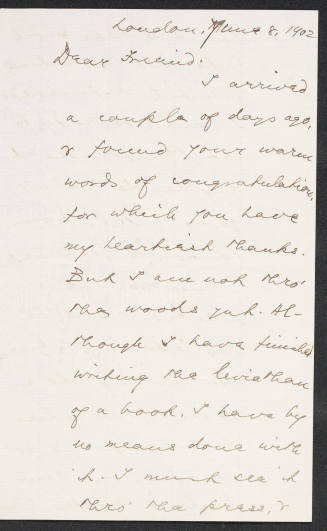 London, June 8, 1902
Dear Friend:
I arrived
a couple of days ago,
& found your warm
words of congratulation,
for which you have
my heartiest thanks.
But I am not thro'
the woods yet. Al-
though I have finished
writing the leviathan
of a book, I have by
no means done with
it. I must see it
thro' the press, &